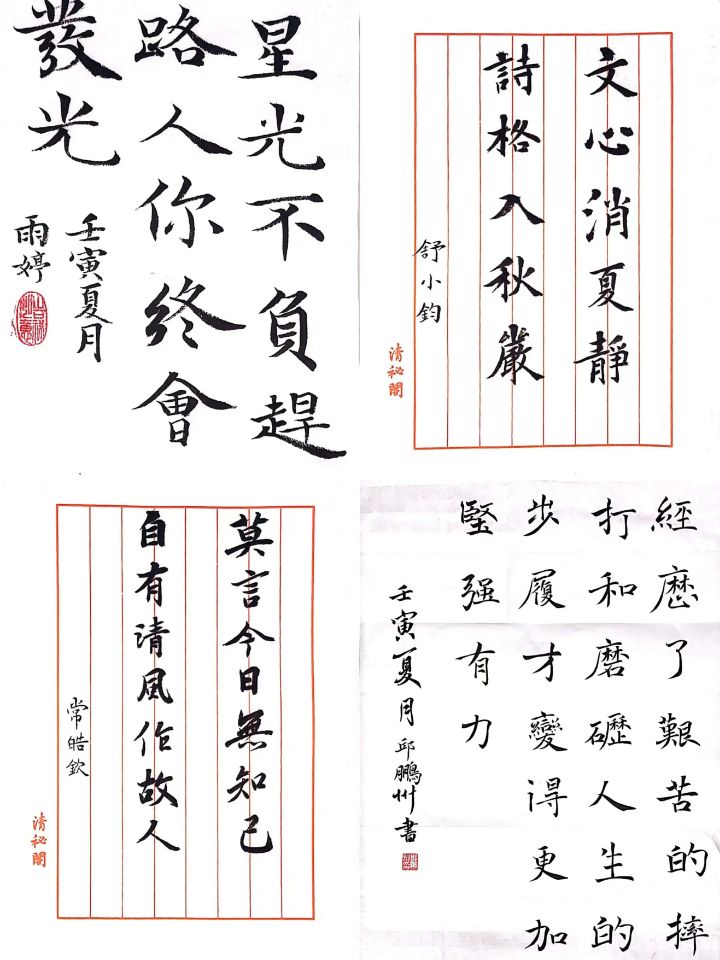 星光不負趕
路人你終會
發光
壬寅夏月
雨婷
文心消夏靜
詩格入秋嚴
舒小鈞
清秘閣
莫言今日無知己
自有清風作故人
常皓欽
清秘閣
經歷了艱苦的摔
打和磨礰人生的
步履才變得更加
堅强有力
壬寅夏月邱鵬州書